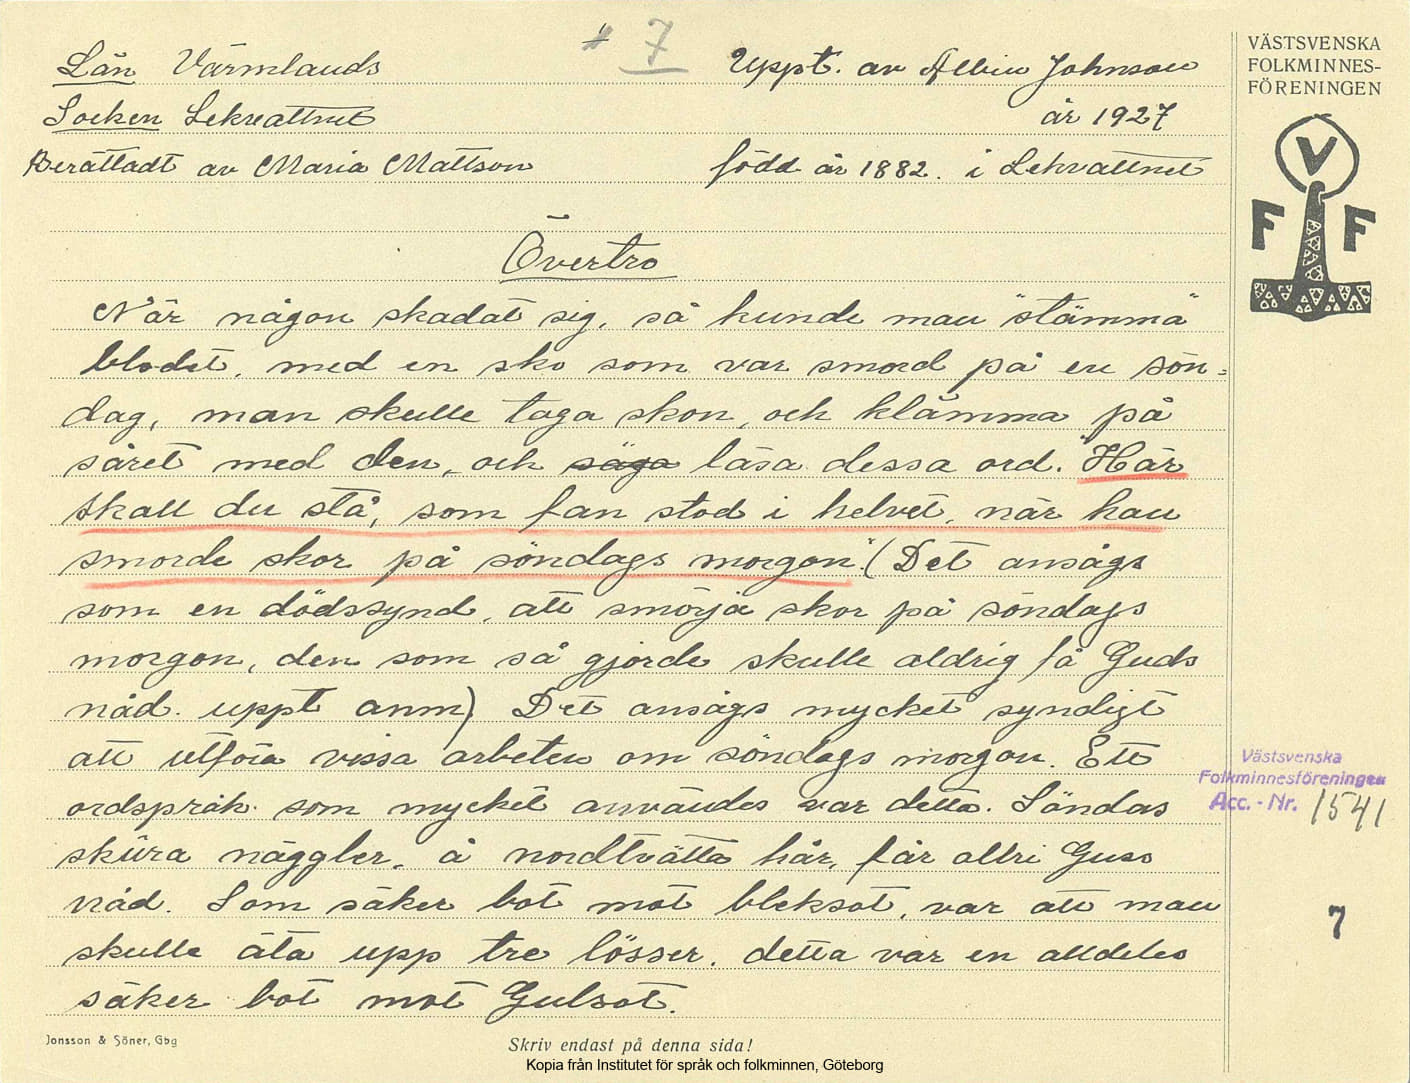 7
Län Värmlands
Uppt. av Albin Johnson
Socken Lekvattnet
år 1927
Berättadt av Maria Mattson
född år 1882. i Lekvattnet
VÄSTSVENSKA
FOLKMINNES-
FÖRENINGEN
V
F F
Övertro
När någon skadat sig, så kunde man "stämma"
blodet, med en sko som var smord på en sön=
dag, man skulle taga skon, och klämma på
såret med den, och säga läsa dessa ord. "Här
skall du stå, som fan stod i helvet, när han
smorde skor på söndags morgon". (Det ansågs
som en dödssynd, att smörja skor på söndags
morgon, den som så gjorde skulle aldrig få Guds
nåd. uppt anm) Det ansågs mycket syndigt
att utföra vissa arbeten om söndags morgon. Ett
ordspråk som mycket användes var detta. Söndas
sküra näggler, å nordtvätta hår, får allri Guss
nåd. Som säker bot mot bleksot, var att man
skulle äta upp tre lösser. detta var en alldeles
säker bot mot Gulsot.
Västsvenska
Folkminnesföreningen
Acc. - Nr. 1541
7
Jonsson & Söner, Gbg
Skriv endast på denna sida!
Kopia från Institutet för språk och folkminnen, Göteborg